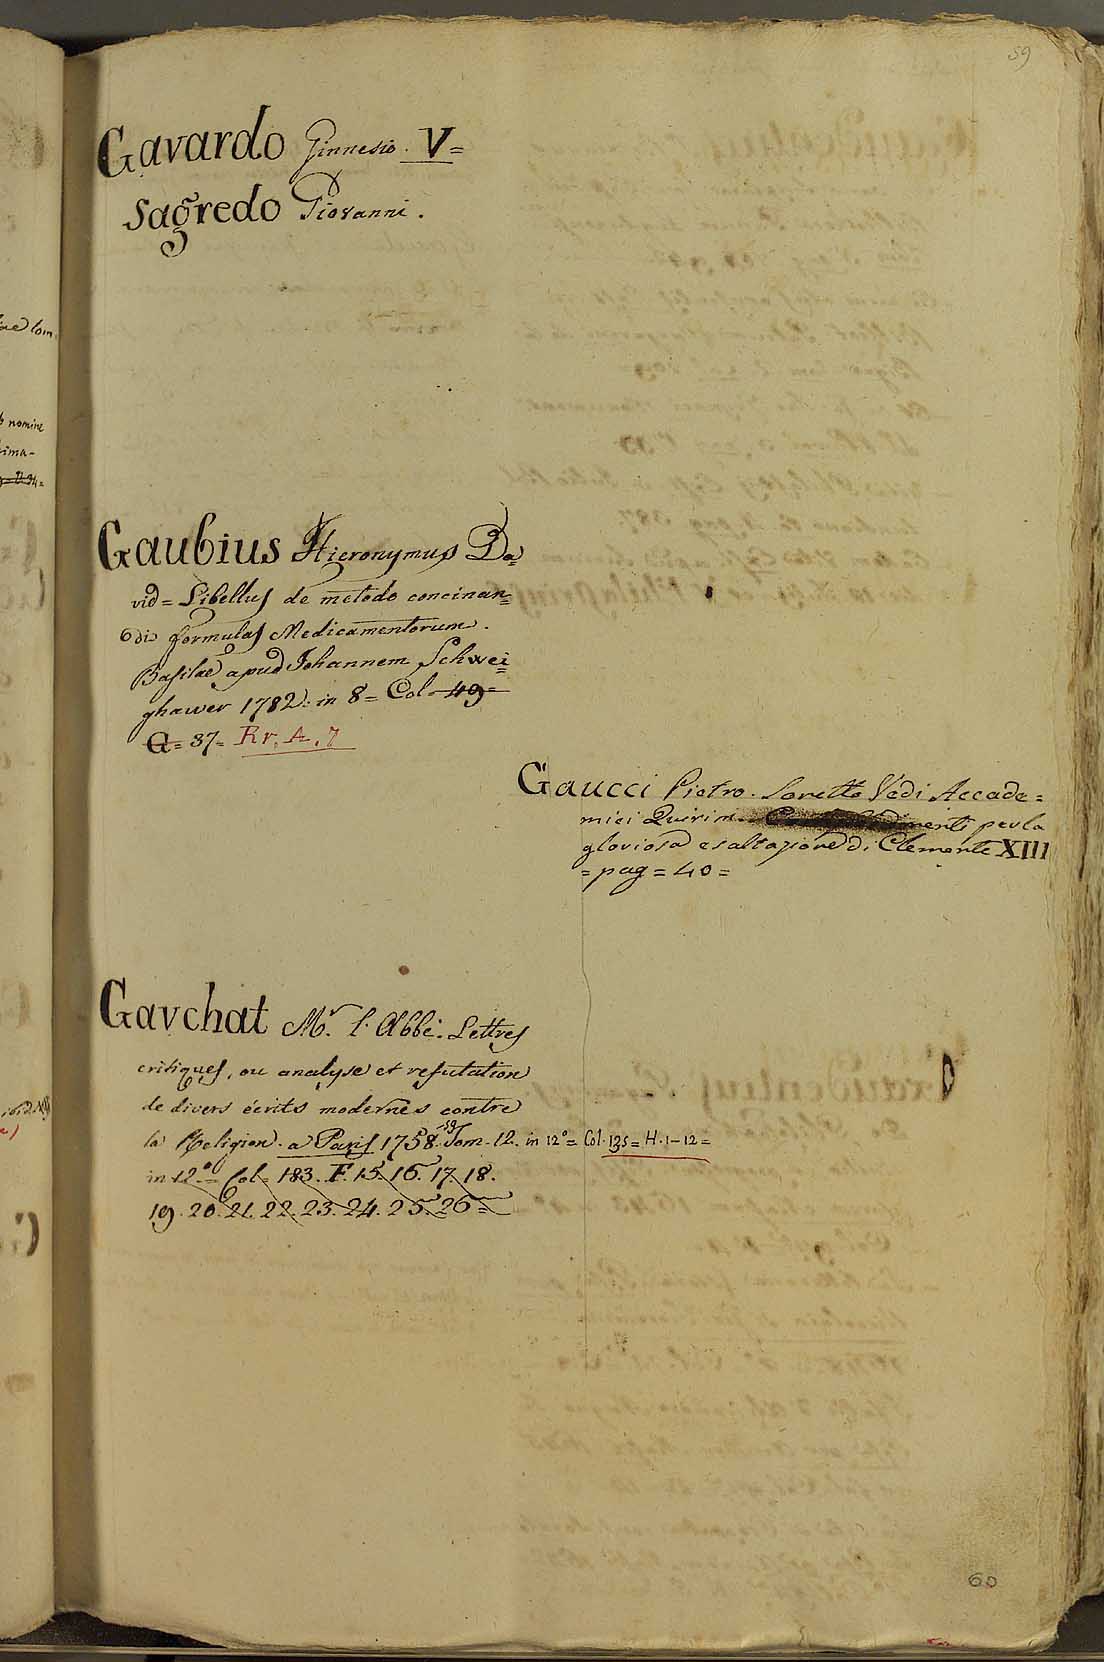 59
Gavardo Ginnesio. V=
Sagredo Giovanni.
Gaubius Hieronymus Da=
vid = Libellus de metodo concinan=
di formulas Medicamentorum.
Basilae apud Johannem Schwei=
ghawer 1782. in 8 = Col. 49 =
G = 37 = Rr. A. 7
Gaucci Pietro. Sonetto Vedi Accade=
mici Quirin. per la
gloriosa esaltazione di Clemente XIII
= pag = 40 =
Gavchat Mr. l. Abbé. Lettres
critiques, ou analyse et refutation
de divers écrits modernes contre
la Religion. a Paris 1758.-59. Tom. 12. in 12° = Col. 135 = H. 1-12 =
in 12.° = Col = 183. F. 15. 16. 17. 18.
19. 20. 21. 22. 23. 24. 25. 26 =
60